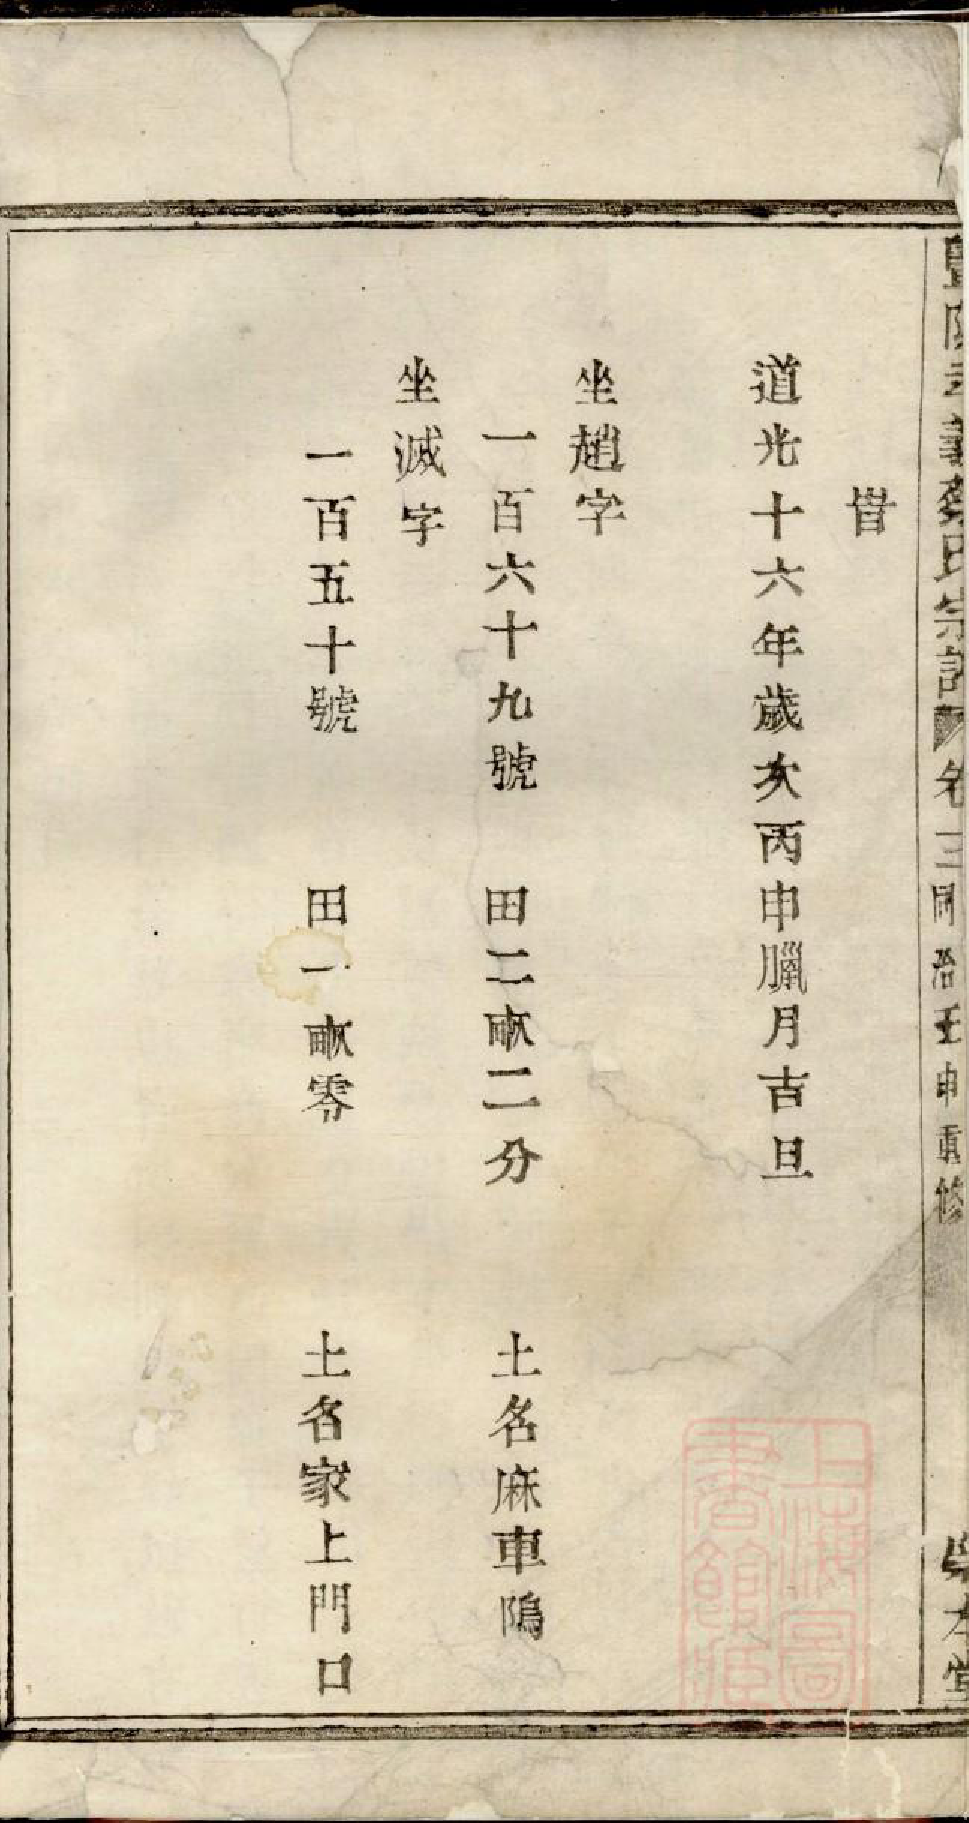 暨陽義蔡氏宗譜 卷三 同治壬申重修 本堂
旹
道光十六年歲次丙申臘月吉旦
坐趙字
一百六十九號 田二畝二分 土名麻車隖
坐滅字
一百五十號 田一畝零 土名家上門口
上海圖書館藏